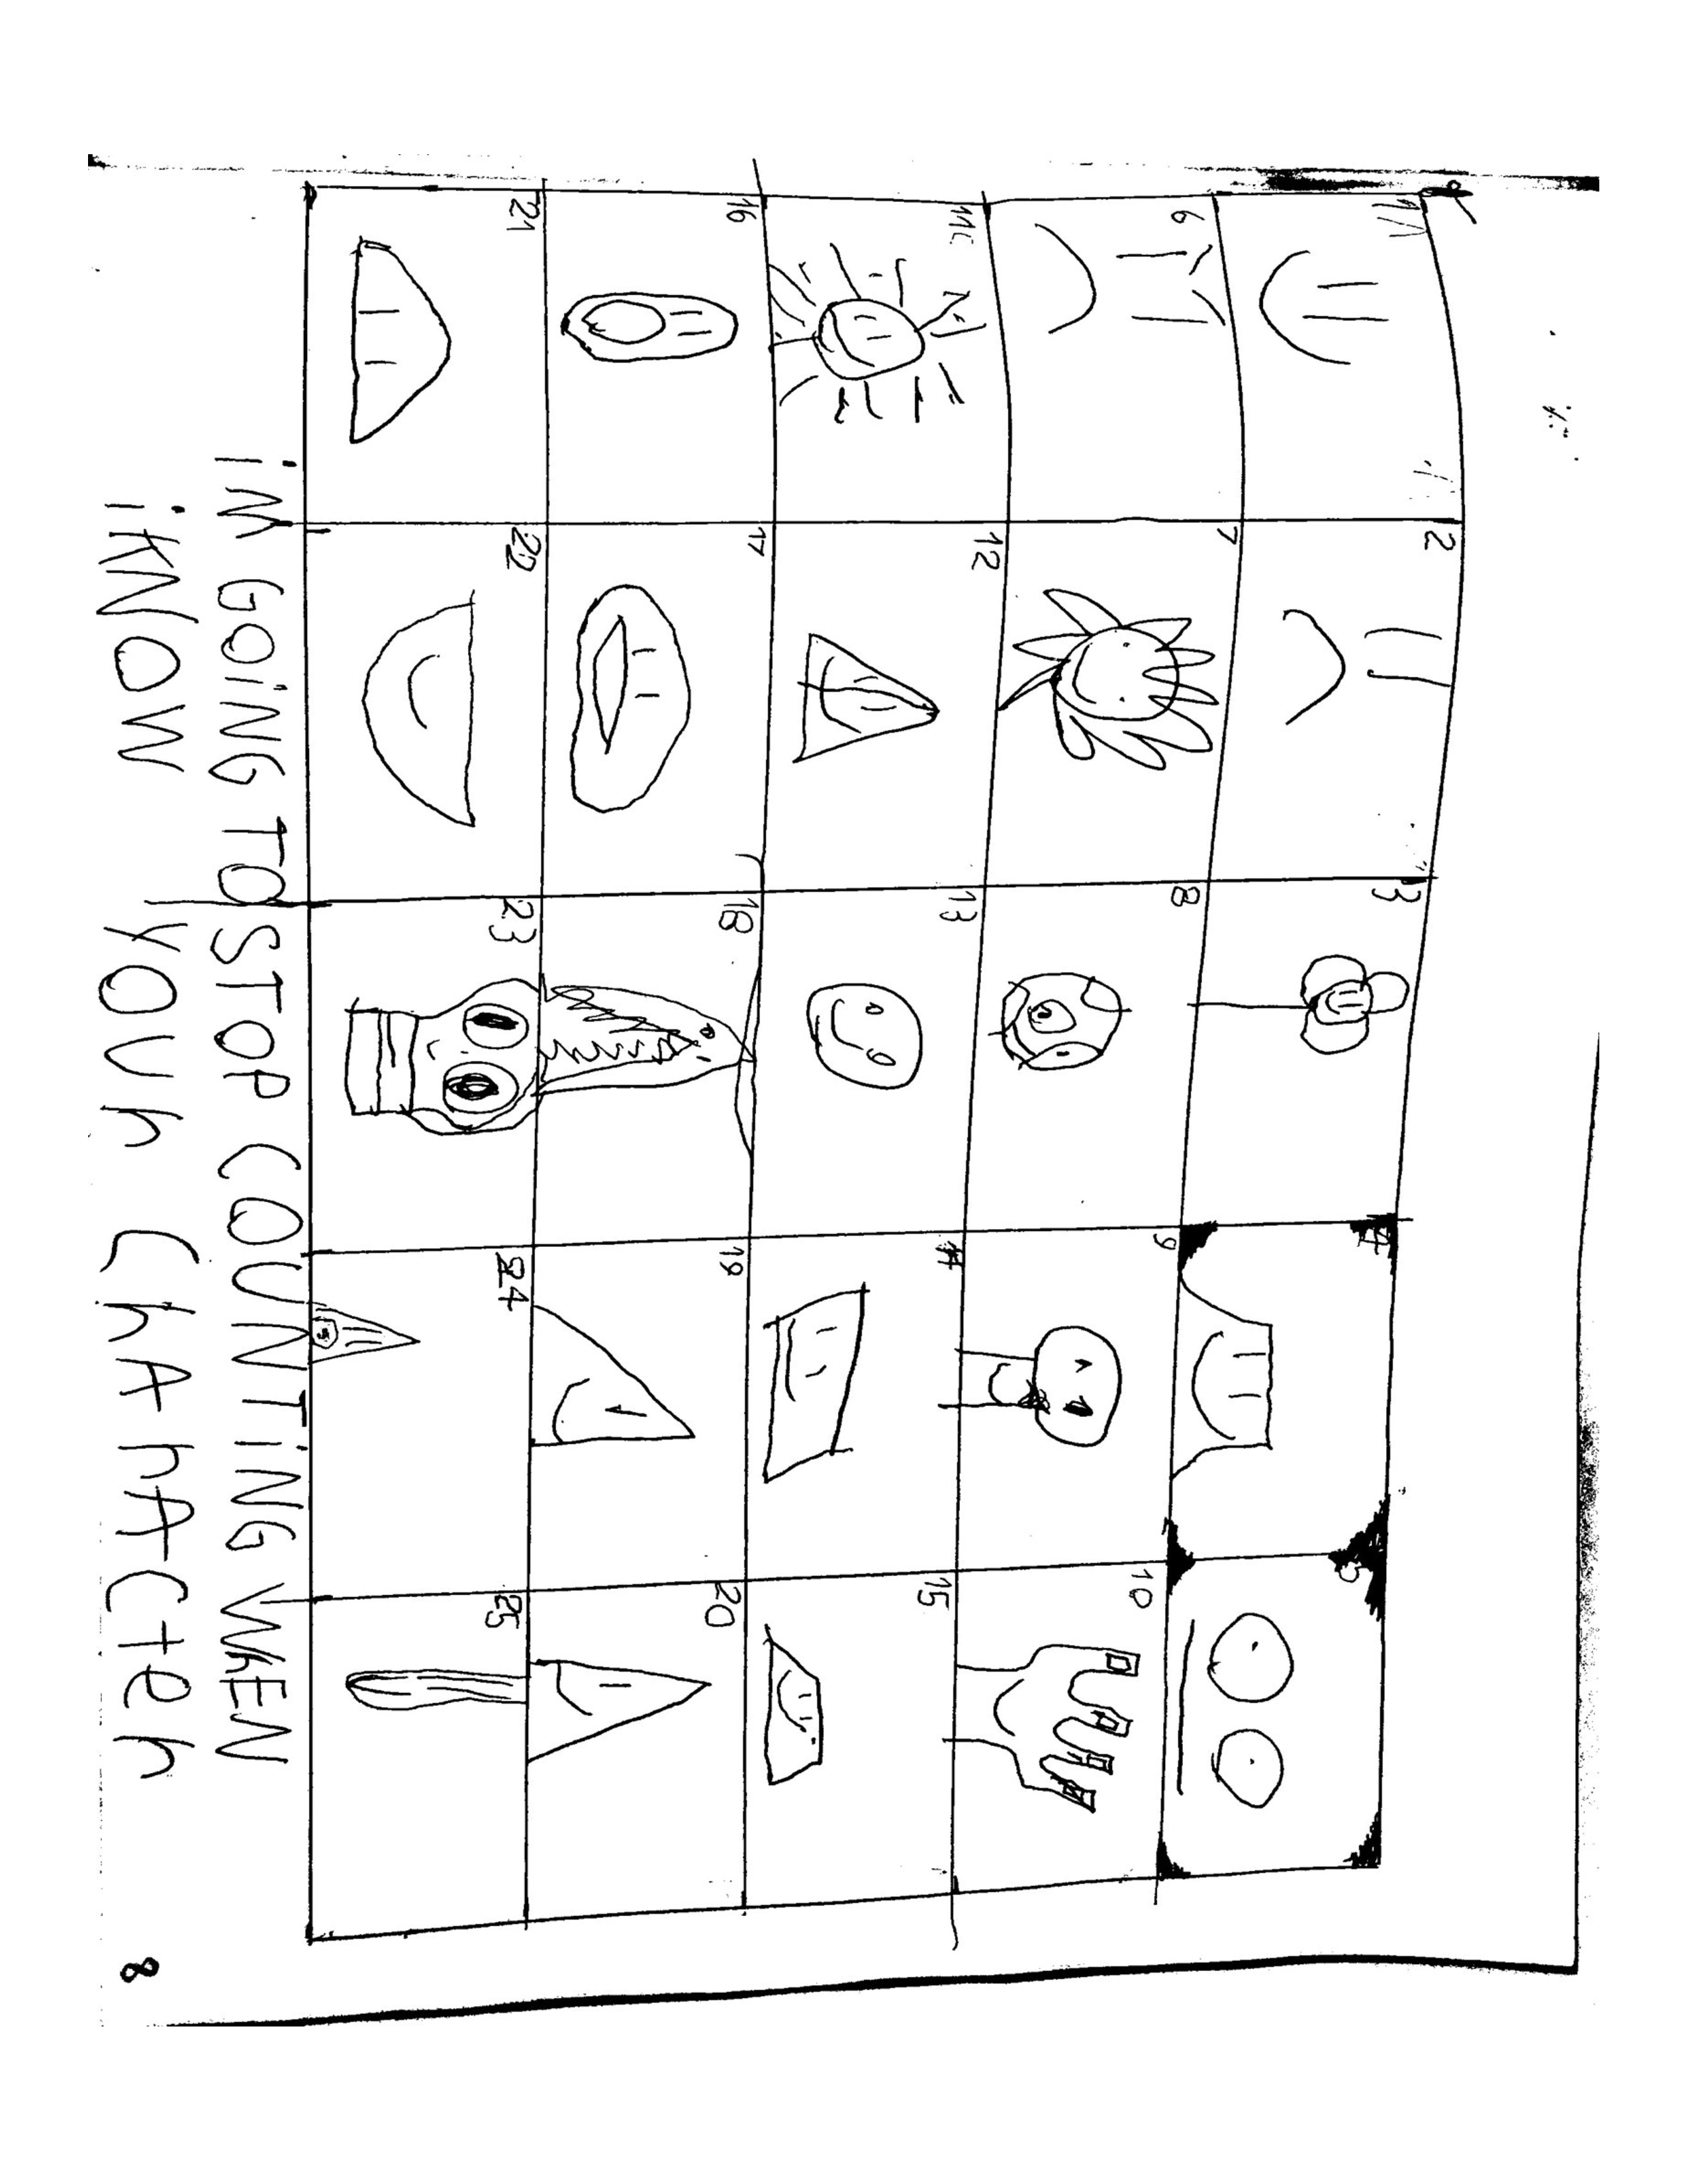 1 2 3 4 5
6 7 8 9 10
11 12 13 14 15
16 17 18 19 20
21 22 23 24 25
iM GOiNG TO STOP COUNTiNG WhEN
iKNOW YOUr ChArActer
8